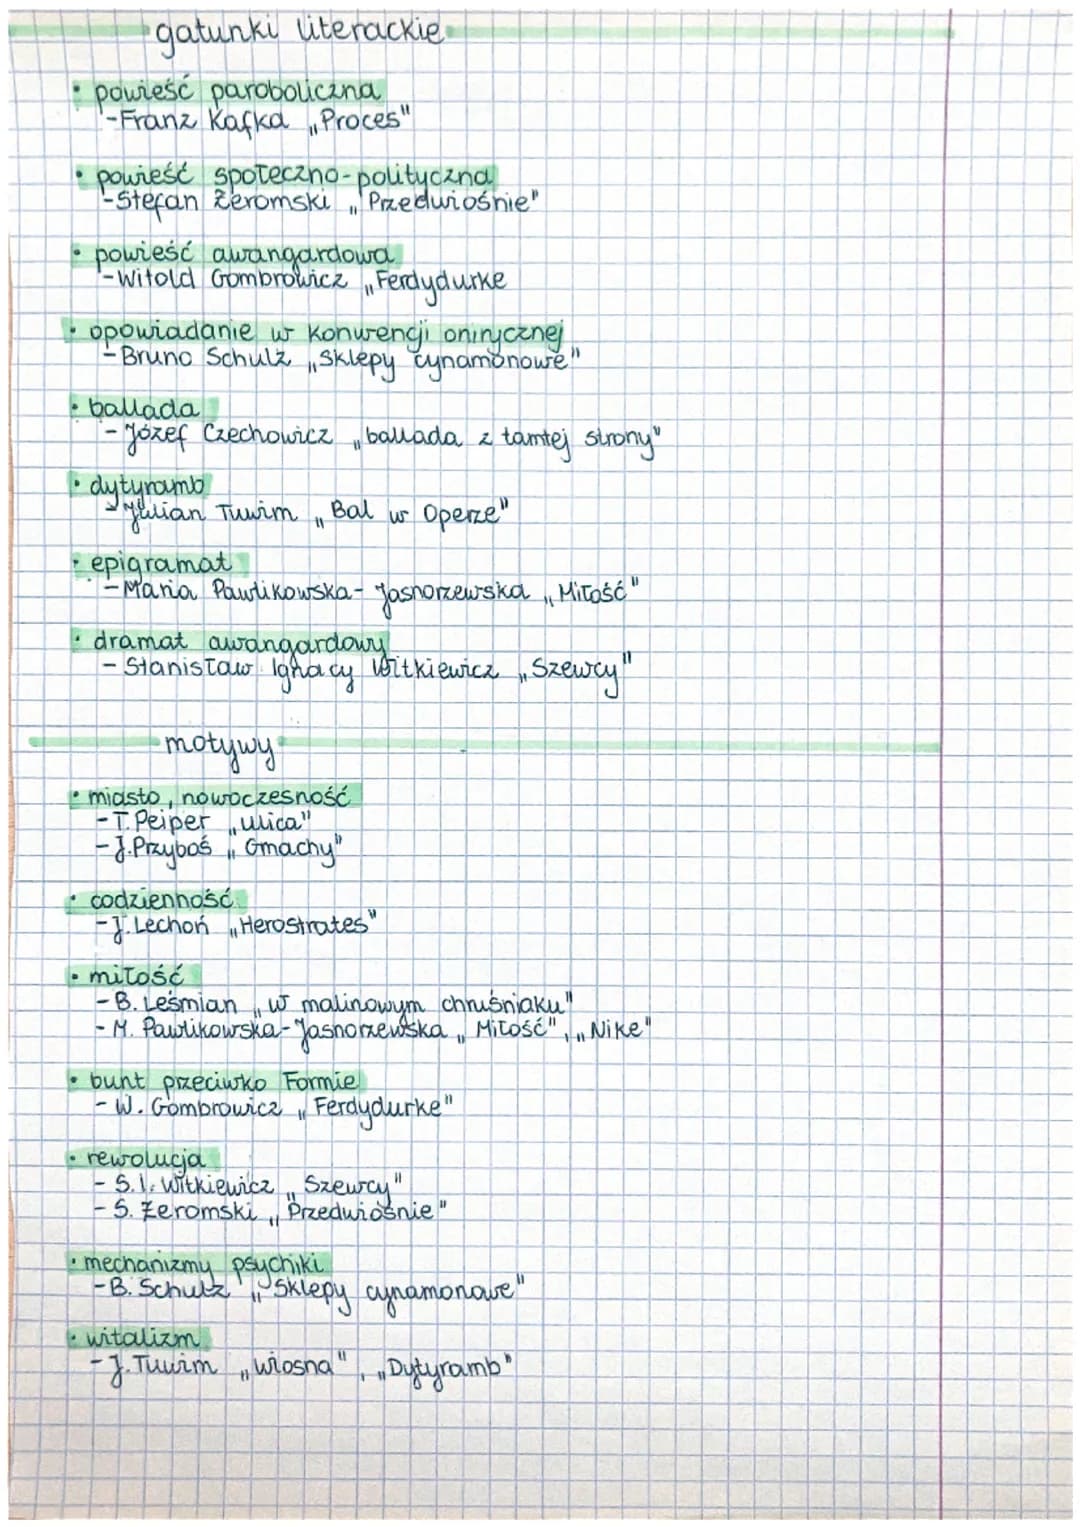 gatunki literackie
• powieść paraboliczna
- Franz Kafka „Proces"
• powieść społeczno-polityczna
- Stefan Żeromski „Przedwiośnie"
• powieść awangardowa
- Witold Gombrowicz „Ferdydurke
• opowiadanie w konwencji onirycznej
- Bruno Schulz „Sklepy cynamonowe"
• ballada
- Józef Czechowicz „ballada z tamtej strony"
• dytyramb
- Julian Tuwim „Bal w Operze"
• epigramat
- Maria Pawlikowska-Jasnorzewska „Miłość"
• dramat awangardowy
- Stanisław Ignacy Witkiewicz „Szewcy"
motywy
• miasto, nowoczesność
- T. Peiper „ulica"
- J. Przyboś „Gmachy"
• codzienność
- J. Lechoń „Herostrates"
• miłość
- B. Leśmian „w malinowym chruśniaku"
- M. Pawlikowska-Jasnorzewska „Miłość", „Nike"
• bunt przeciwko Formie
- W. Gombrowicz „Ferdydurke"
• rewolucja
- S. I. Witkiewicz „Szewcy"
- S. Żeromski „Przedwiośnie"
• mechanizmy psychiki
- B. Schulz „Sklepy cynamonowe"
• witalizm
- J. Tuwim „wiosna", „Dytyramb"